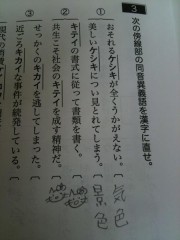 3 次の傍線部の同音異義語を漢字に直せ。
① おそれるケシキが全くうかがえない。〔気色
美しいケシキについ見とれてしまう。〔景色
② キテイの書式に従って書類を書く。〔
共生こそ社会のキテイを成す精神だ。〔
③ せっかくのキカイを逃してしまった。〔
近ごろキカイな事件が続発している。〔